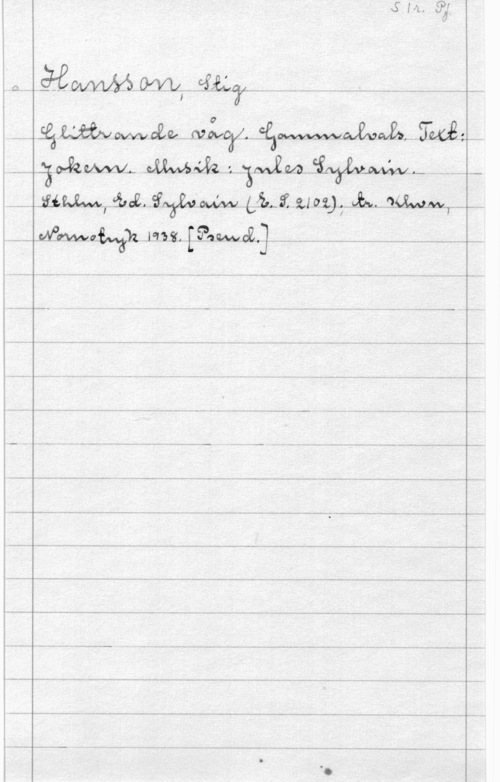 S 1r. Pf.
Hansson, Stig
Glittrande våg. Gammalvals. Text:
Jokern. Musik: Jules Sylvain.
Sthlm, Ed. Sylvain (E. S. 2102); tr. Khvn,
Nornotryk 1938. [Pseud.]